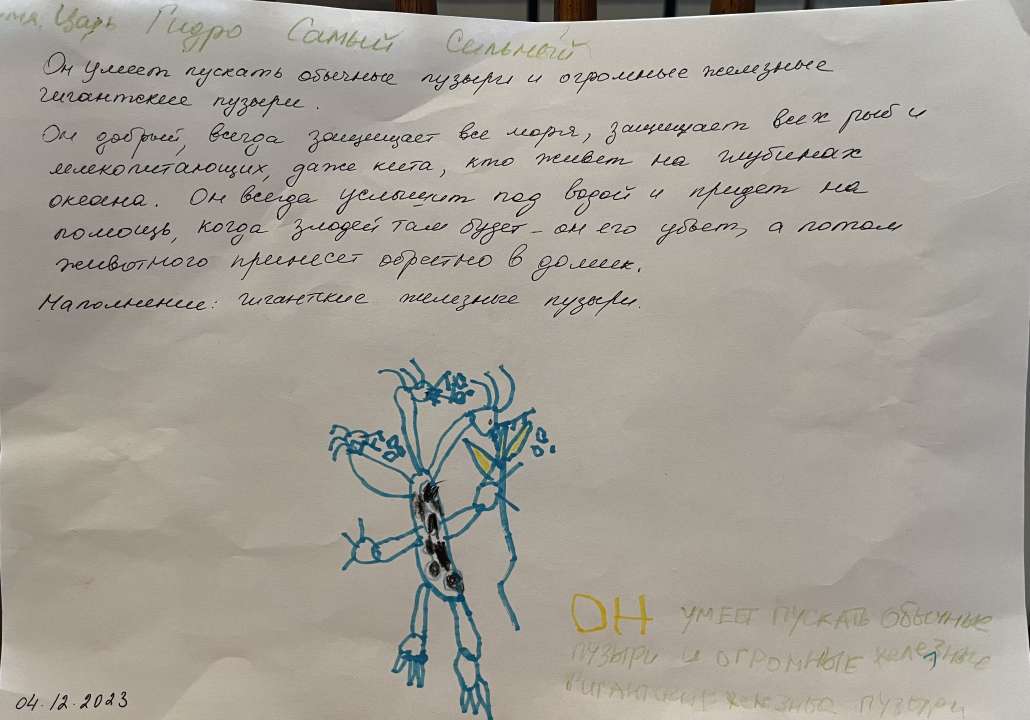 имя. Царь Гидро Самый Сильный
Он умеет пускать обычные пузыри и огромные железные
гигантские пузыри.
Он добрый, всегда защищает все моря, защищает всех рыб и
млекопитающих, даже кита, кто живет на глубинах
океана. Он всегда услышит под водой и придет на
помощь, когда злодей там будет - он его убьет, а потом
животного принесет обратно в домик.
Наполнение: гигантские железные пузыри.
ОН УМЕЕТ ПУСКАТЬ ОБЫЧНЫЕ
ПУЗЫРИ И ОГРОМНЫЕ железные
ГИГАНТСКИЕ ПУЗЫРИ
04.12.2023